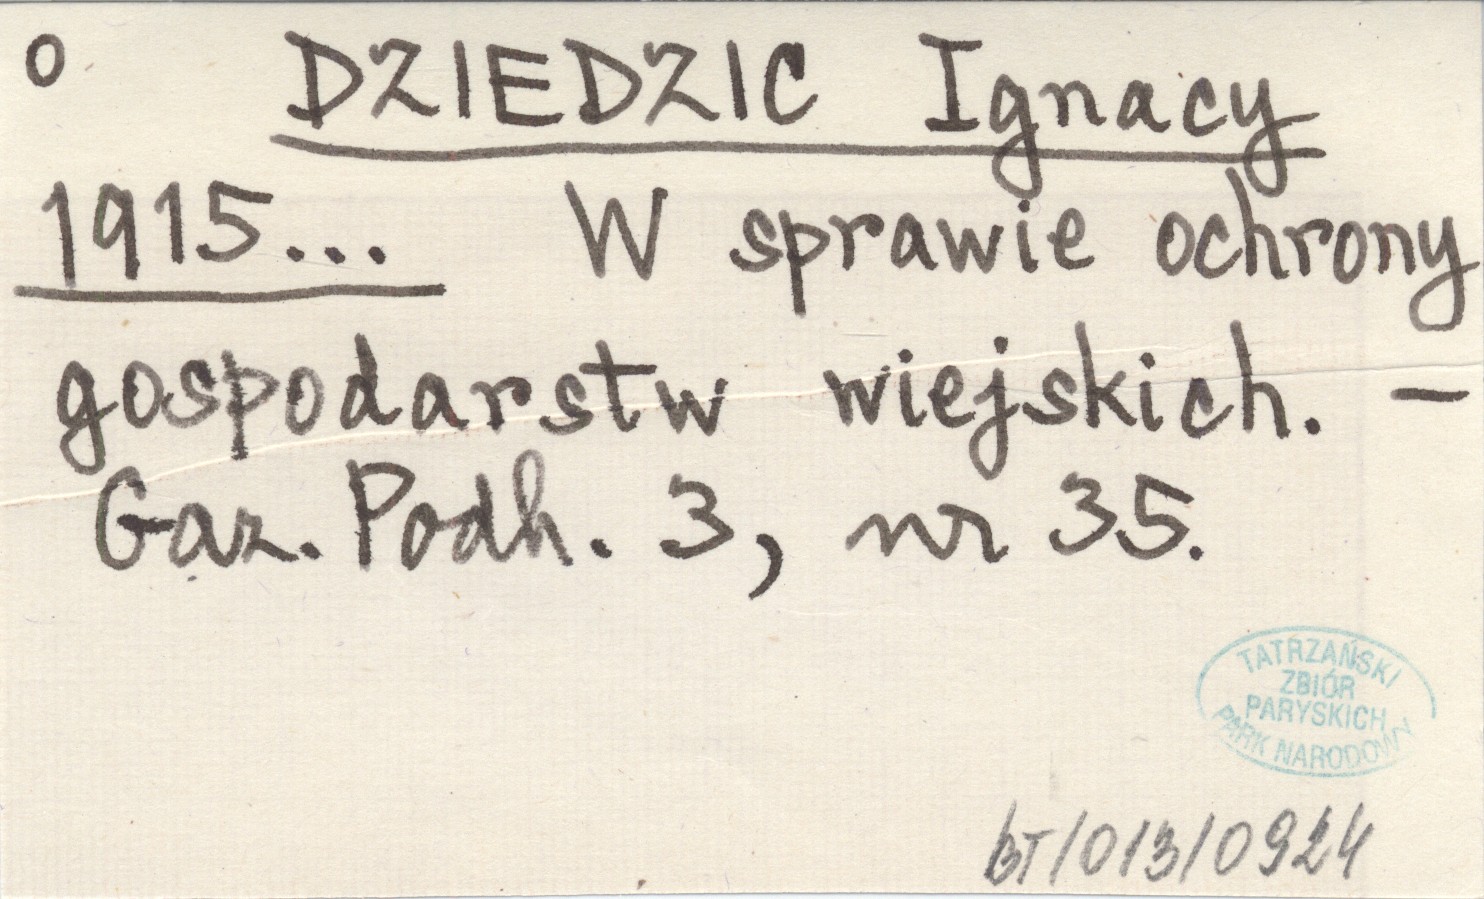 o DZIEDZIC Ignacy
1915... W sprawie ochrony
gospodarstw wiejskich. –
Gaz. Podh. 3, nr 35.
TATRZAŃSKI
ZBIÓR
PARYSKICH
PARK NARODOWY
BT/013/0924